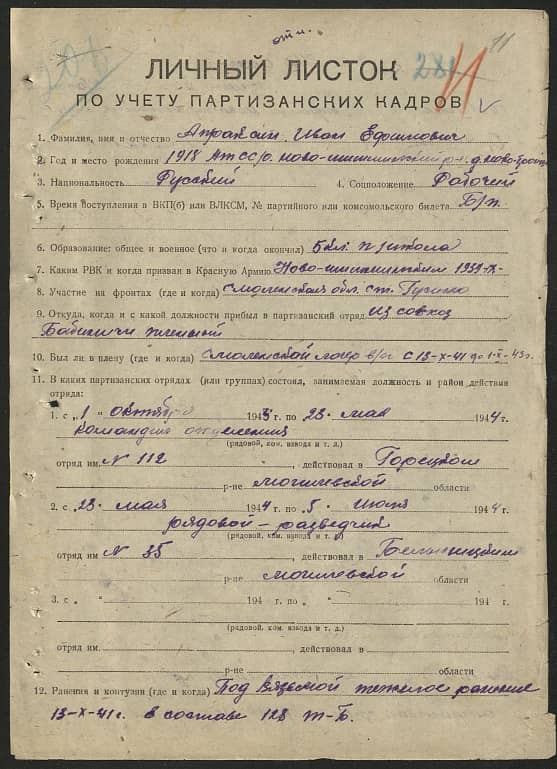 отл. 11
206 281
ЛИЧНЫЙ ЛИСТОК
ПО УЧЕТУ ПАРТИЗАНСКИХ КАДРОВ
1. Фамилия, имя и отчество Апраксин Иван Ефимович
2. Год и место рождения 1918
3. Национальность Русский 4. Соцположение Рабочий
5. Время поступления в ВКП(б) или ВЛКСМ, № партийного или комсомольского билета Б/п.
6. Образование: общее и военное (что и когда окончил) 5 кл. школа
7. Каким РВК и когда призван в Красную Армию 1939-X-
8. Участие на фронтах (где и когда) Смоленская обл. ст. Гусино
9. Откуда, когда и с какой должности прибыл в партизанский отряд из совхоз
10. Был ли в плену (где и когда) Смоленской лагер в/пл с 13-X-41 до 1-X-43г.
11. В каких партизанских отрядах (или группах) состоял, занимаемая должность и район действия
отряда:
1. с „1 " октября 1943 г. по 23 мая 1944 г.
командир отделения
(рядовой, ком. взвода и т. д.)
отряд им. № 112, действовал в Горецком
р-не могилевской области
2. с 23 мая 1944 г. по 5 июля 1944 г.
рядовой-разведчик
(рядовой, ком. взвода и т. д.)
отряд им № 35, действовал в
р-не могилевской области
3. с „ " 194 г. по „ " 194 г.
(рядовой, ком. взвода и т. д.)
отряд им., действовал в
р-не области
12. Ранения и контузии (где и когда) Под Вязьмой тяжелое ранение
13-X-41г. в составе 128 т-Б.